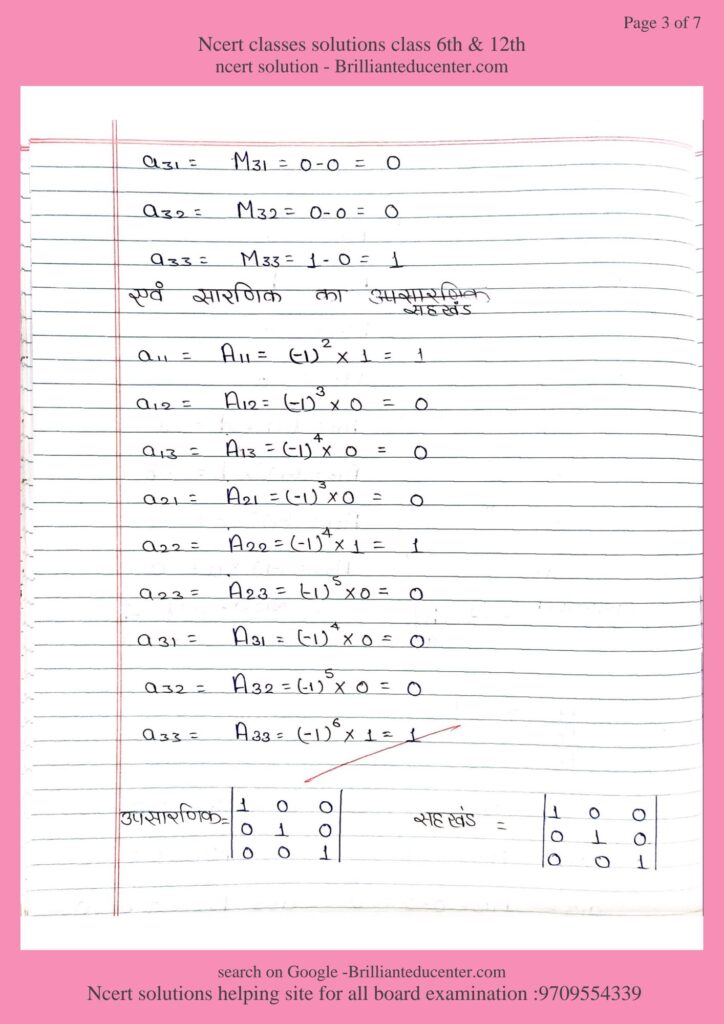 Page 3 of 7
Ncert classes solutions class 6th & 12th
ncert solution - Brillianteducenter.com
a₃₁ = M₃₁ = 0-0 = 0
a₃₂ = M₃₂ = 0-0 = 0
a₃₃ = M₃₃ = 1-0 = 1
एवं सारणिक का उपसारणिक
सहखंड
a₁₁ = A₁₁ = (-1)² × 1 = 1
a₁₂ = A₁₂ = (-1)³ × 0 = 0
a₁₃ = A₁₃ = (-1)⁴ × 0 = 0
a₂₁ = A₂₁ = (-1)³ × 0 = 0
a₂₂ = A₂₂ = (-1)⁴ × 1 = 1
a₂₃ = A₂₃ = (-1)⁵ × 0 = 0
a₃₁ = A₃₁ = (-1)⁴ × 0 = 0
a₃₂ = A₃₂ = (-1)⁵ × 0 = 0
a₃₃ = A₃₃ = (-1)⁶ × 1 = 1
उपसारणिक = | 1 0 0 | सहखंड = | 1 0 0 |
| 0 1 0 | | 0 1 0 |
| 0 0 1 | | 0 0 1 |
search on Google -Brillianteducenter.com
Ncert solutions helping site for all board examination :9709554339